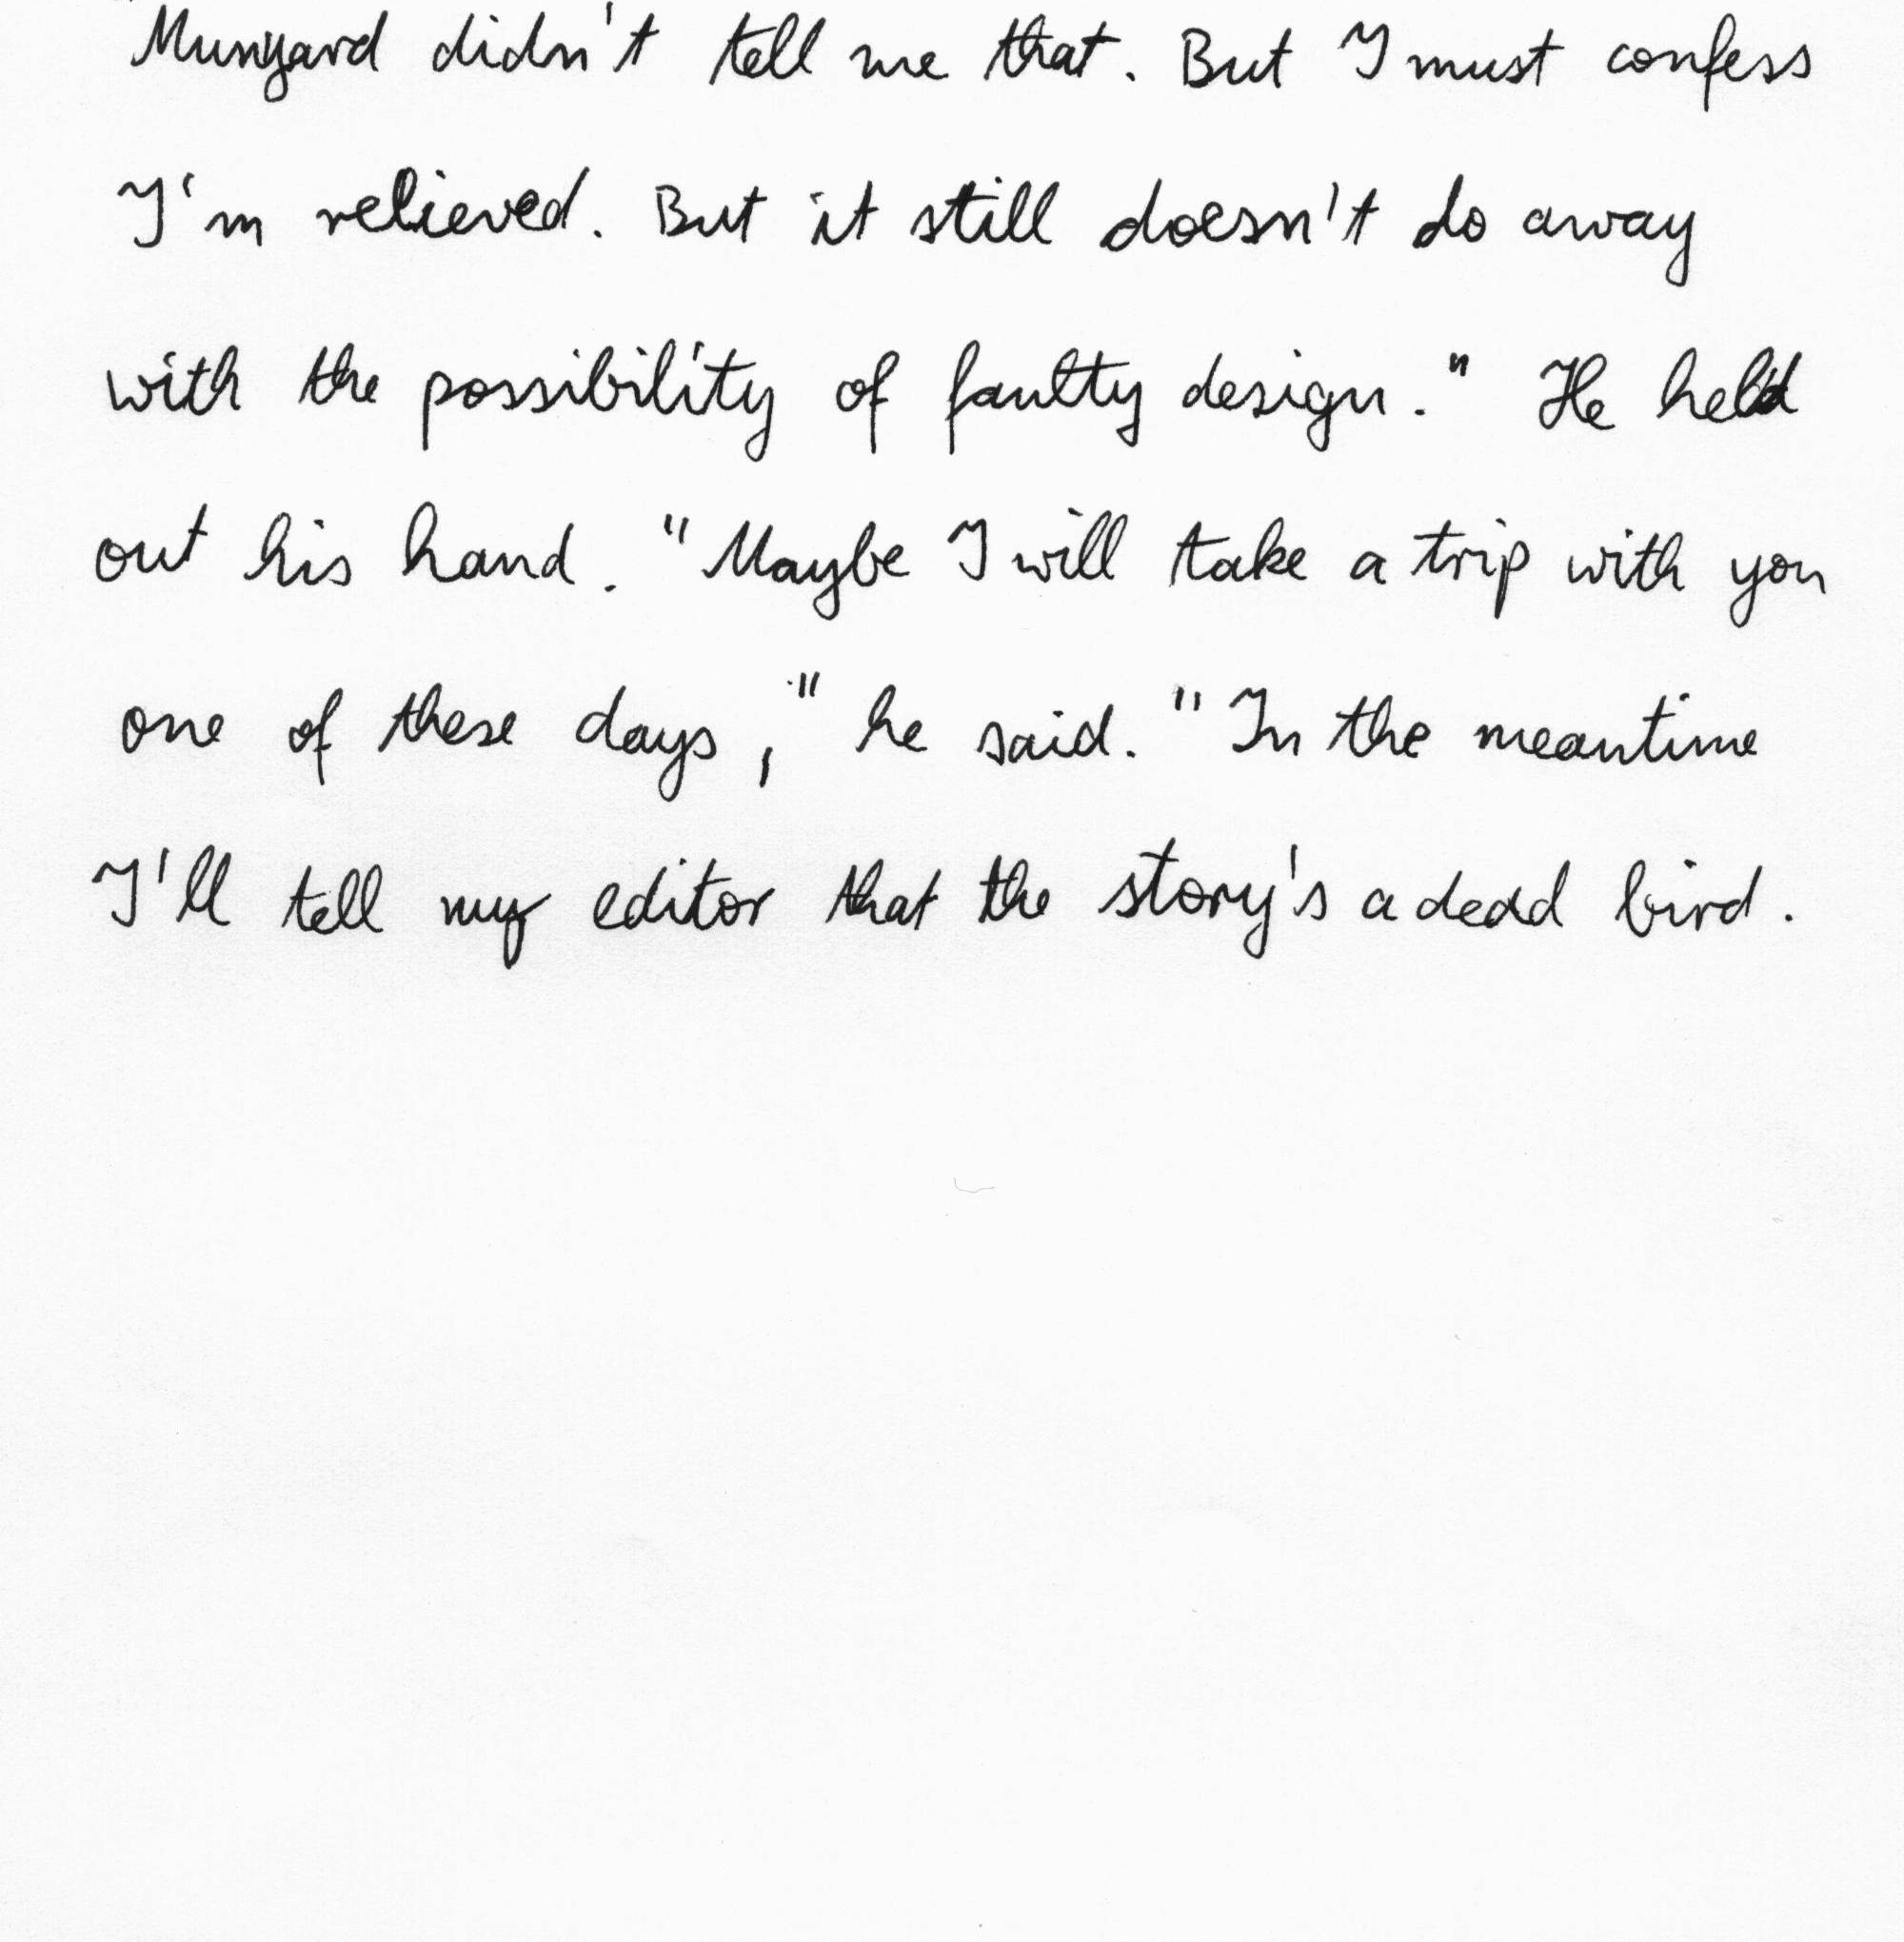 "Mungard didn't tell me that. But I must confess
I'm relieved. But it still doesn't do away
with the possibility of faulty design." He held
out his hand. "Maybe I will take a trip with you
one of these days," he said. "In the meantime
I'll tell my editor that the story's a dead bird.